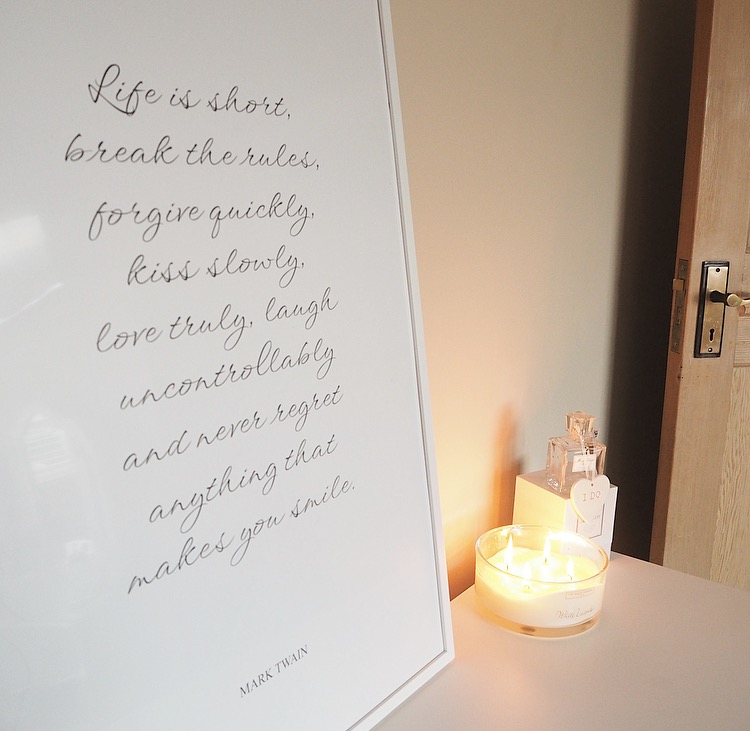 Life is short,
break the rules,
forgive quickly,
kiss slowly,
love truly, laugh
uncontrollably
and never regret
anything that
makes you smile.
MARK TWAIN
I DO
White